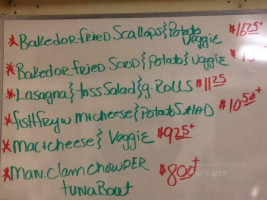 *Baked or Fried Scallops} Potato $16.25+
Veggie
*Baked or Fried Scrod} Potato} Veggie
*Lasagna} Toss Salad} g. Rolls $11.25
*fish Fry w maccheese} Potato Salad $10.50+
*Mac+cheese} Veggie $9.25+
*Man. Clam Chowder $8.00+
tuna Boat